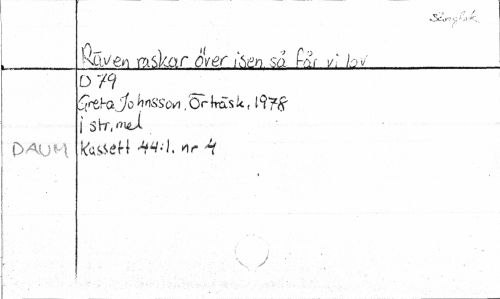 Sånglek
Räven raskar över isen, så får vi lov
D 79
Greta Johnsson, Örträsk, 1978
1 str, mel
DAUM Kassett 44:1. nr 4